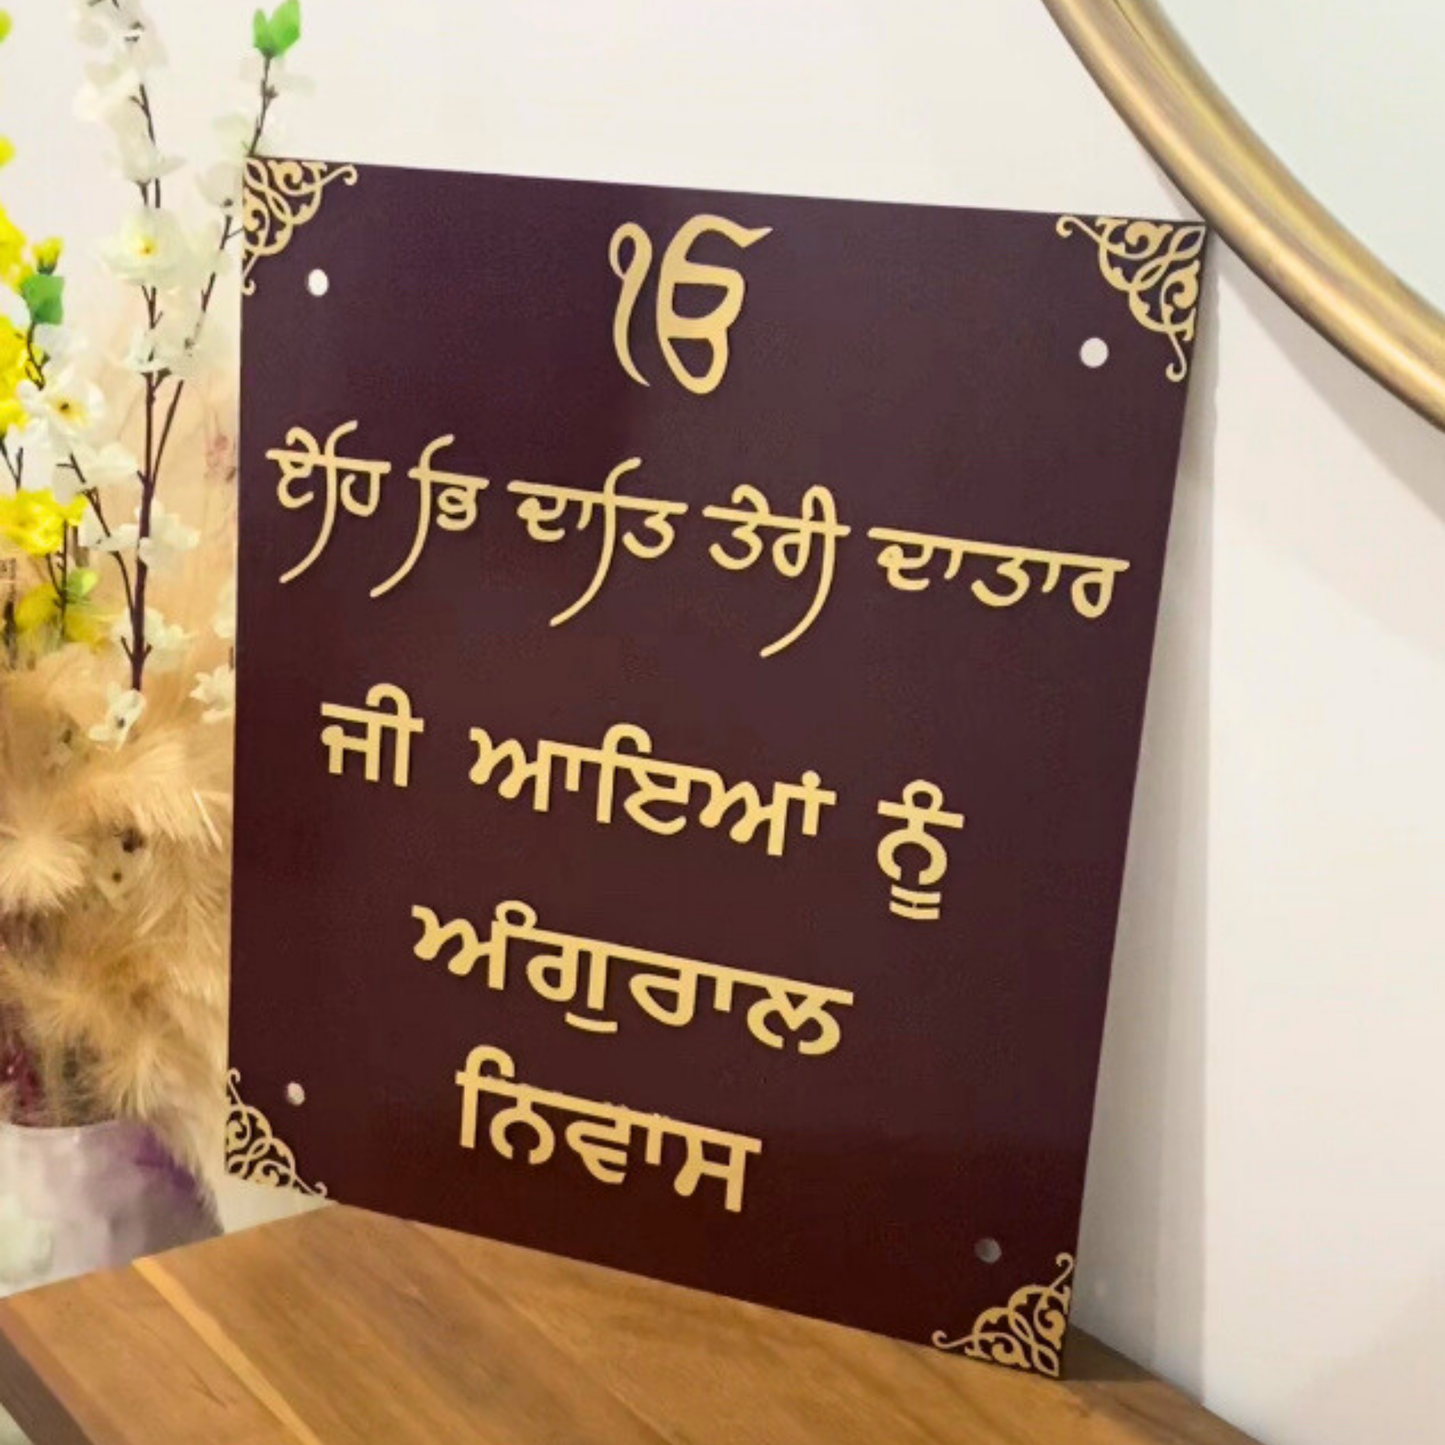 ੴ
ਏਹਿ ਭਿ ਦਾਤਿ ਤੇਰੀ ਦਾਤਾਰ
ਜੀ ਆਇਆਂ ਨੂੰ
ਅੰਗੁਰਾਲ
ਨਿਵਾਸ